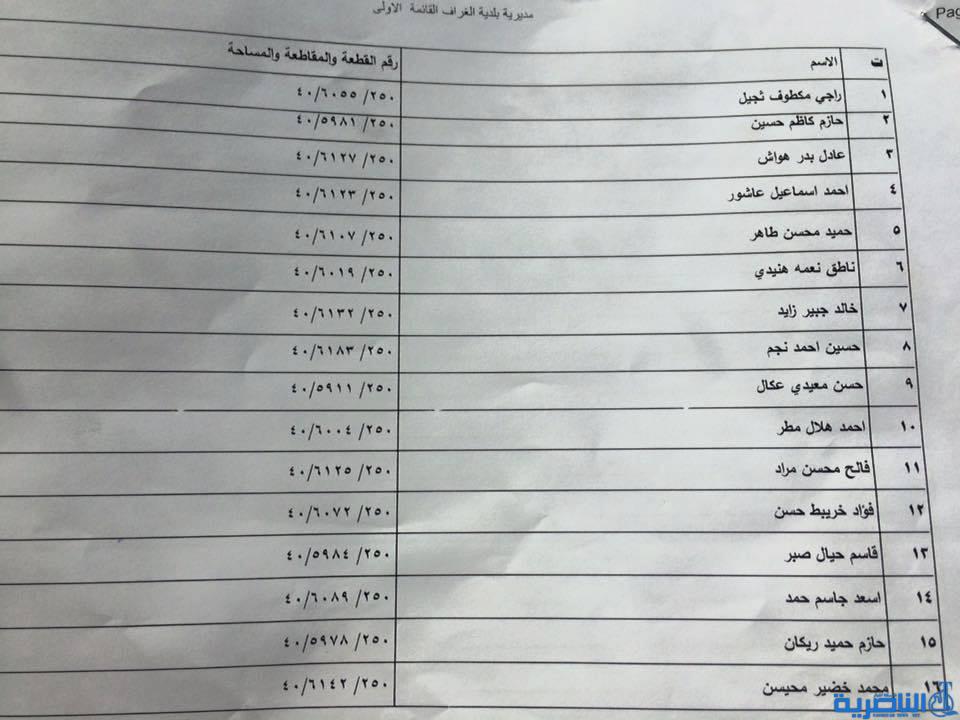 Pag
مديرية بلدية الغراف القائمة الاولى
ت الاسم رقم القطعة والمقاطعة والمساحة
١ راجي مكطوف ثجيل ٤٠/٦٠٥٥ /٢٥٠
٢ حازم كاظم حسين ٤٠/٥٩٨١ /٢٥٠
٣ عادل بدر هواش ٤٠/٦١٢٧ /٢٥٠
٤ احمد اسماعيل عاشور ٤٠/٦١٢٣ /٢٥٠
٥ حميد محسن طاهر ٤٠/٦١٠٧ /٢٥٠
٦ ناطق نعمه هنيدي ٤٠/٦٠١٩ /٢٥٠
٧ خالد جبير زايد ٤٠/٦١٣٢ /٢٥٠
٨ حسين احمد نجم ٤٠/٦١٨٣ /٢٥٠
٩ حسن معيدي عكال ٤٠/٥٩١١ /٢٥٠
١٠ احمد هلال مطر ٤٠/٦٠٠٤ /٢٥٠
١١ فالح محسن مراد ٤٠/٦١٢٥ /٢٥٠
١٢ فؤاد خريبط حسن ٤٠/٦٠٧٢ /٢٥٠
١٣ قاسم حيال صبر ٤٠/٥٩٨٤ /٢٥٠
١٤ اسعد جاسم حمد ٤٠/٦٠٨٩ /٢٥٠
١٥ حازم حميد ريكان ٤٠/٥٩٧٨ /٢٥٠
١٦ محمد خضير محيسن ٤٠/٦١٤٢ /٢٥٠
الناصرية